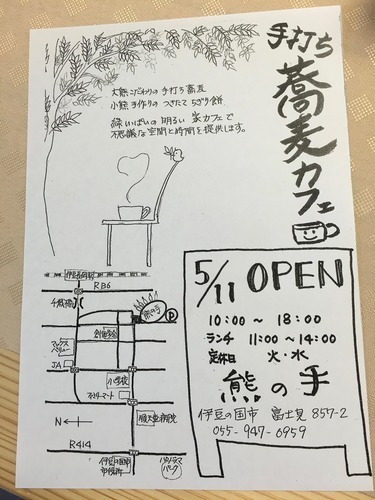 手打ち
蕎麦カフェ
大熊こだわりの手打ち蕎麦
小熊手作りのつきたてちぎり餅
緑いっぱいの明るい家カフェで
不思議な空間と時間を提供します。
5/11 OPEN
10:00 ~ 18:00
ランチ 11:00 ~ 14:00
定休日 火・水
熊の手
伊豆の国市 富士見 857-2
055-947-6959
伊豆長岡駅
R136
千歳橋
熊の手
P
マックスバリュー
JA
小学校
ファミリーマート
順天堂病院
N
R414
伊豆の国市
市役所
パノラマ
パーク